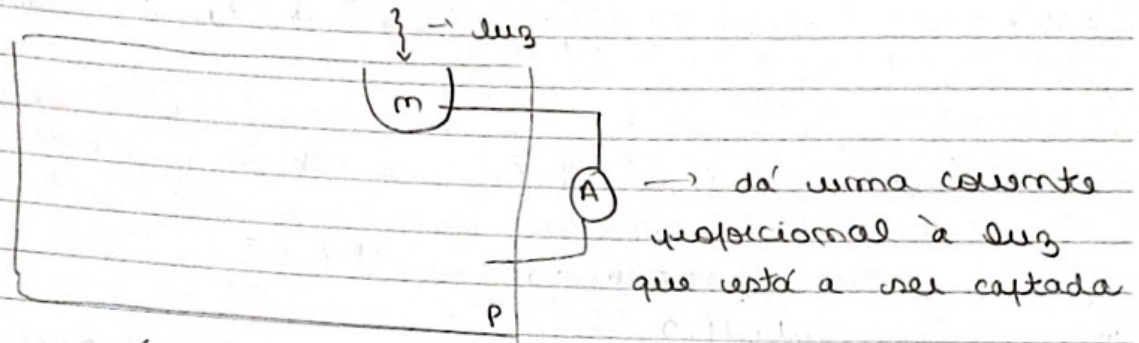 → luz
n
A → dá uma corrente
proporcional à luz
que está a ser captada
P